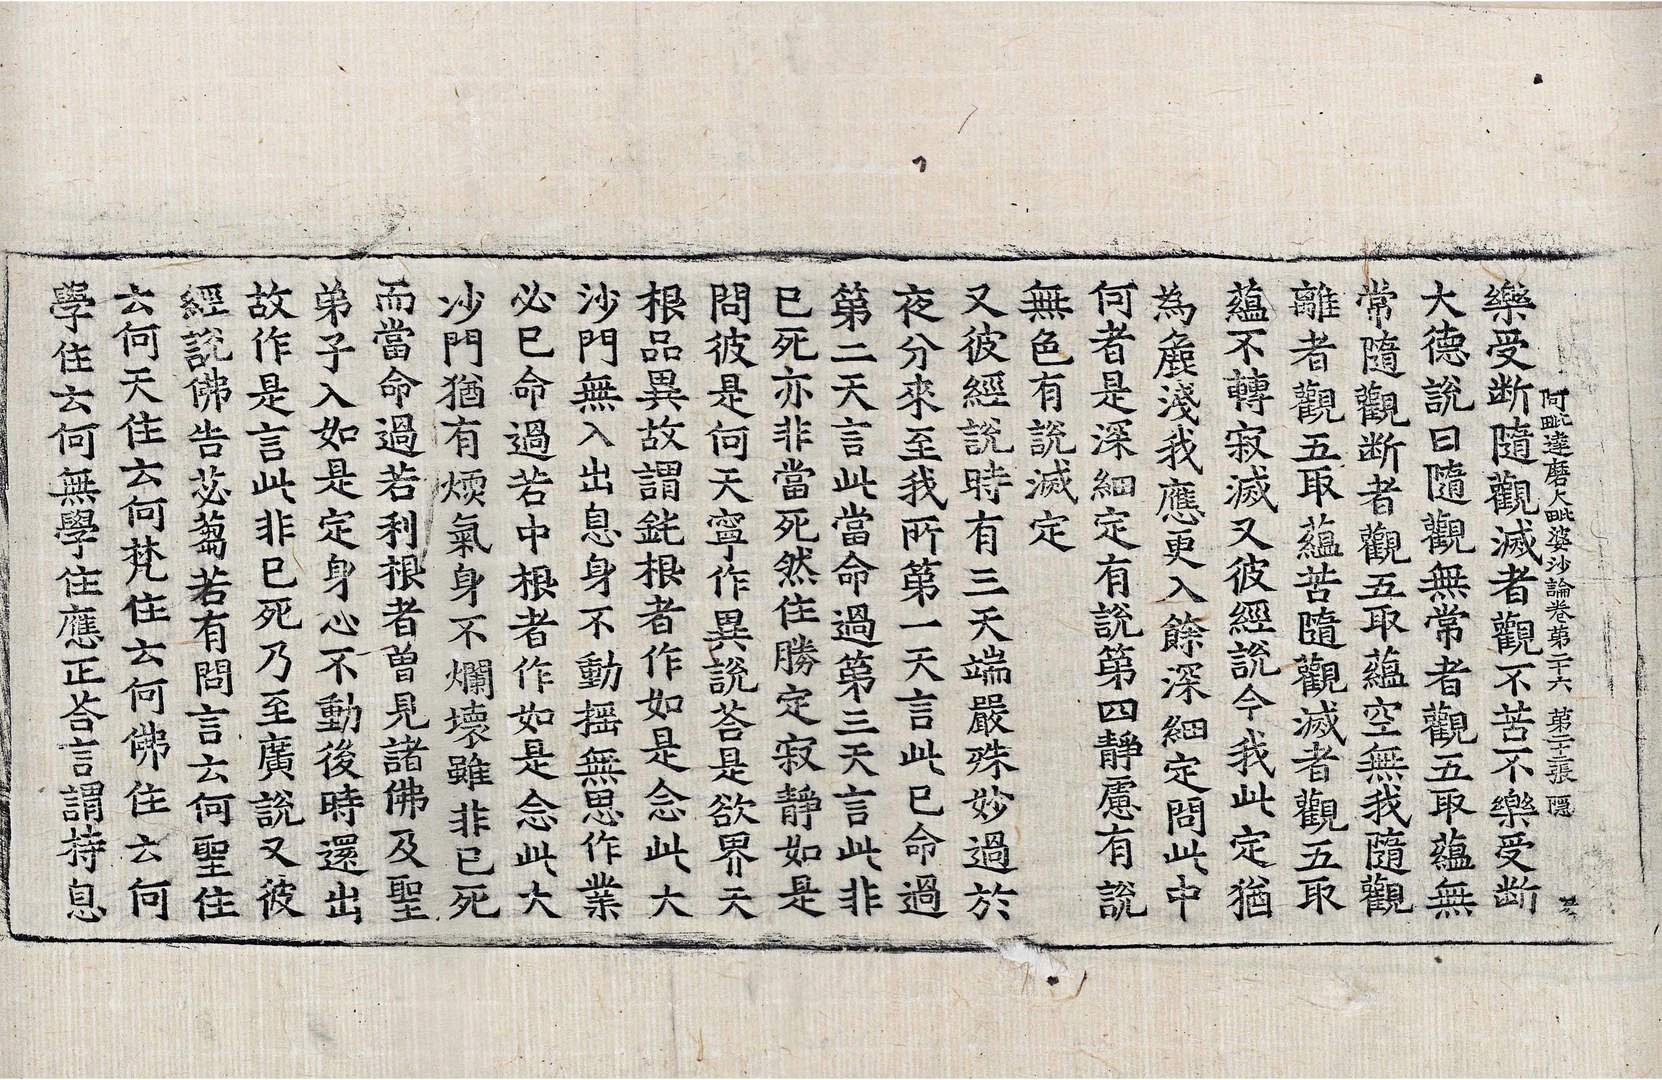 阿毗達磨大毗婆沙論卷第二十六 第二十三張 隱
樂受断隨觀滅者觀不苦不樂受断
大德說曰隨觀無常者觀五取蘊無
常隨觀断者觀五取蘊空無我隨觀
離者觀五取蘊苦隨觀滅者觀五取
蘊不轉寂滅又彼經說今我此定猶
為麁淺我應更入餘深細定問此中
何者是深細定有說第四靜慮有說
無色有說滅定
又彼經說時有三天端嚴殊妙過於
夜分來至我所第一天言此已命過
第二天言此當命過第三天言此非
已死亦非當死然住勝定寂靜如是
問彼是何天寧作異說荅是欲界天
根品異故謂鈍根者作如是念此大
沙門無入出息身不動揺無思作業
必已命過若中根者作如是念此大
沙門猶有煗氣身不爛壞雖非已死
而當命過若利根者曽見諸佛及聖
弟子入如是定身心不動後時還出
故作是言此非已死乃至廣說又彼
經說佛告苾蒭若有問言云何聖住
云何天住云何梵住云何佛住云何
學住云何無學住應正荅言謂持息